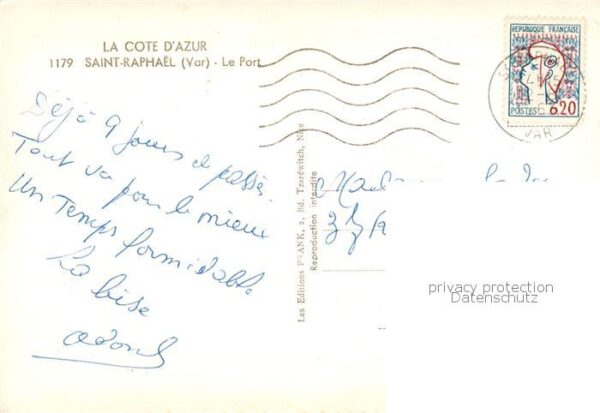 LA COTE D'AZUR
1179 SAINT-RAPHAËL (Var) - Le Port
Déjà 9 jours de passés.
Tout va pour le mieux
Un Temps formidable
La bise
Les Editions FRANK, 2, Bd. Tzaréwitch, Nice
Reproduction interdite
REPUBLIQUE FRANÇAISE
POSTES 0,20
VAR
privacy protection
Datenschutz